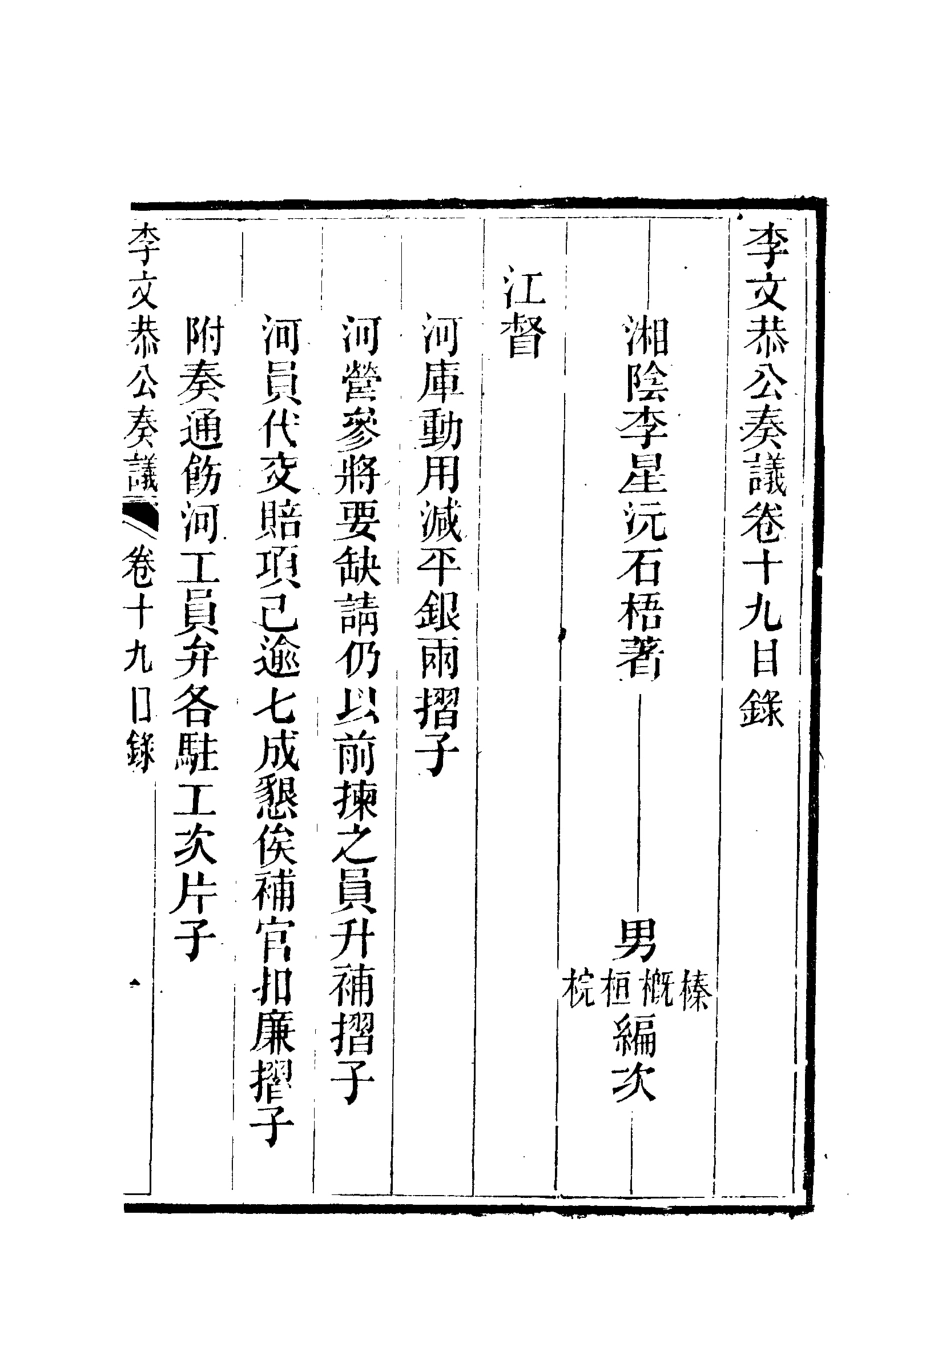 李文恭公奏議卷十九目錄
湘陰李星沅石梧著
男榛概桓梡編次
江督
河庫動用減平銀兩摺子
河營參將要缺請仍以前揀之員升補摺子
河員代交賠項已逾七成懇俟補官扣廉摺子
附奏通飭河工員弁各駐工次片子
李文恭公奏議 卷十九目錄